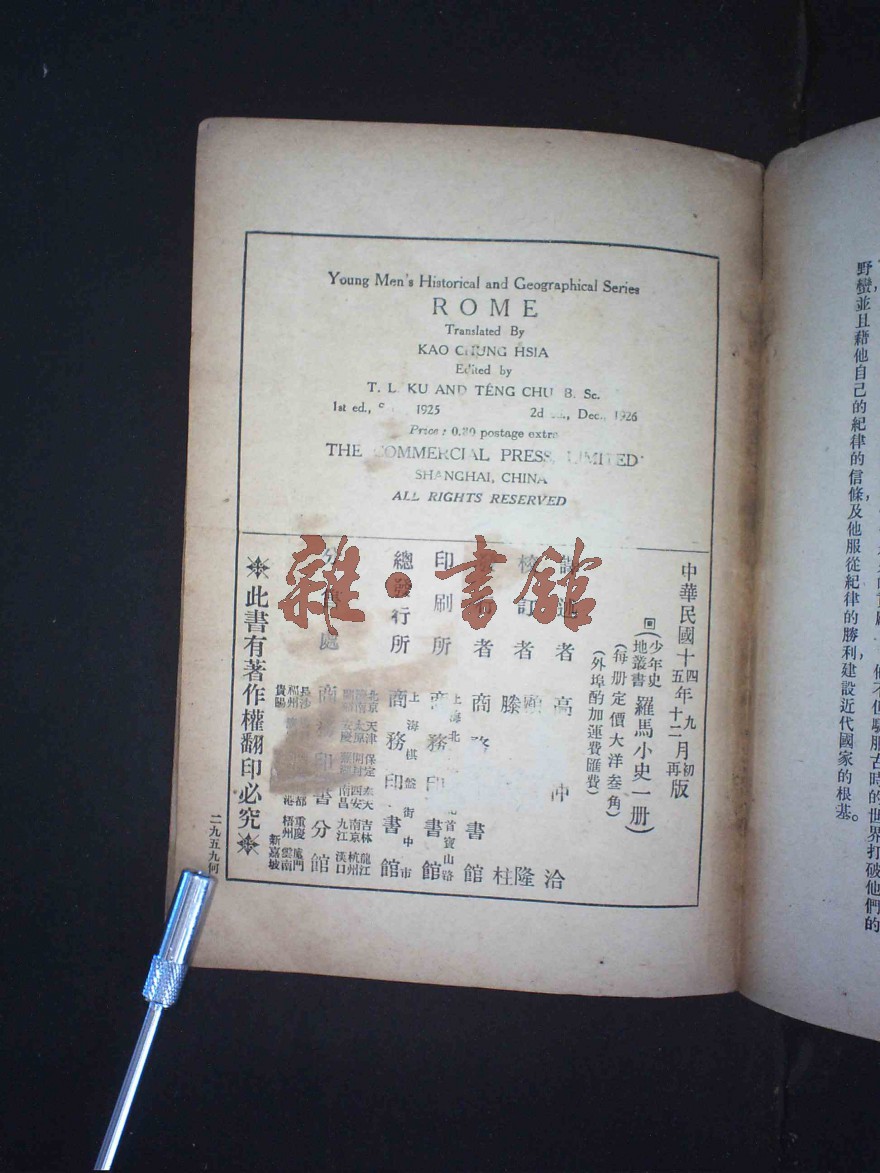 Young Men's Historical and Geographical Series
ROME
Translated By
KAO CHUNG HSIA
Edited by
T. L. KU AND TÊNG CHU B. Sc.
1st ed., 1925
2d Dec., 1926
Price: 0.30 postage extra
THE COMMERCIAL PRESS, LIMITED
SHANGHAI, CHINA
ALL RIGHTS RESERVED
雜·書館
中華民國十四年九月初版
五年十二月再版
(少年史地叢書)羅馬小史一册)
(每册定價大洋叁角)
(外埠酌加運費匯費)
譯述者 高 沖 洽
校訂者 顧 隆
滕 柱
者 商務 書館
印刷所 商務印書館
上海北 首寶山路
總發行所 商務印書館
上海棋盤街中市
分 處 商務印書分館
北京 天津 保定 奉天 吉林 龍江
濟南 太原 開封 西安 南京 杭州
安慶 南昌 九江 漢口
長沙 重慶 廈門
福州 港 梧州 雲南
貴陽 新嘉坡
此書有著作權翻印必究
二九五九何
他不但馴服古時的世界打破他們的
野蠻並且藉他自己的紀律的信條及他服從紀律的勝利建設近代國家的根基。